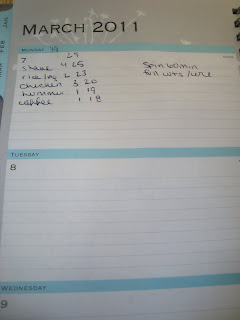 JAN
FEB
MARCH 2011
MONDAY
7 29
shake 4 25
2 23
chicken 3 20
hummus 1 19
coffee 1 18
Spin 60min
wts / core
TUESDAY
8
WEDNESDAY
9